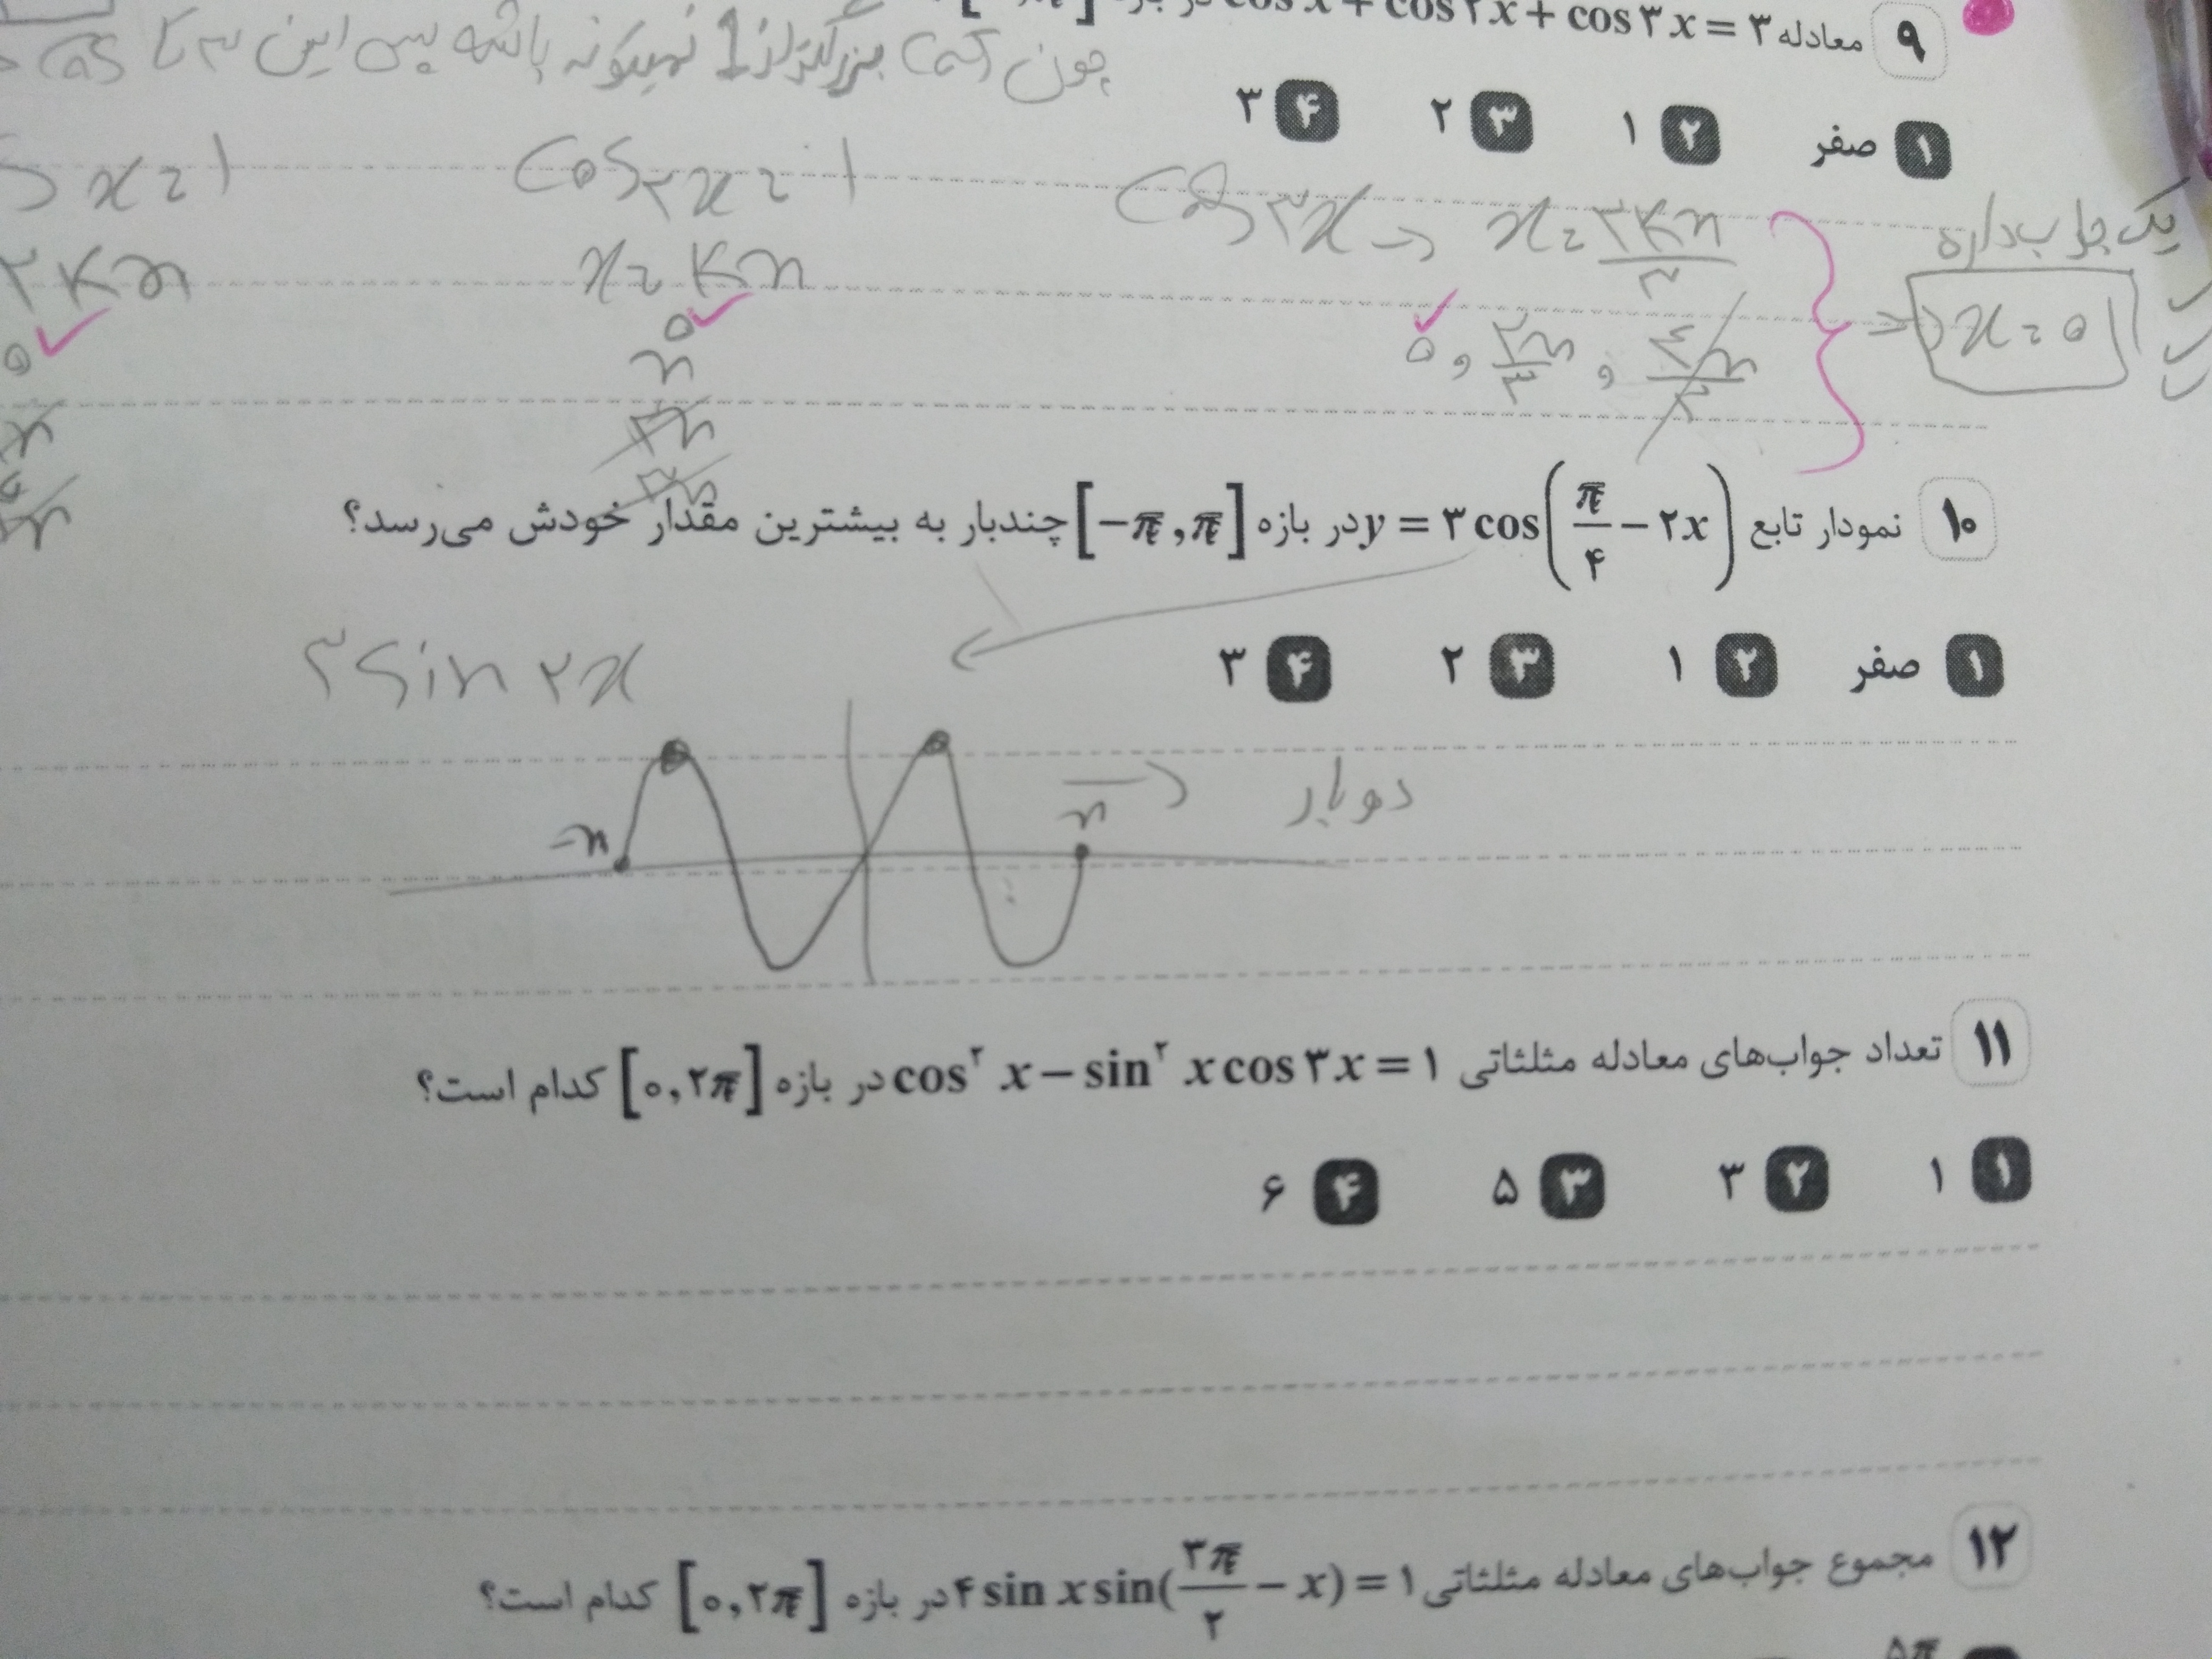 ۹ معادله cos x + cos ۲x + cos ۳x = ۳ در
چون cos بزرگتر از 1 نمیتونه باشه پس این ۳ تا cos
۱ صفر ۲ ۱ ۳ ۲ ۴ ۳
x = ۱ cos ۲x = ۱ cos ۳x → x = ۲kπ/۳
یک جواب داره
۲kπ x = kπ
۰ ۰ ۰ , ۲π/۳ , ۴π/۳ ⇒ x = ۰
π
۲π
۱۰ نمودار تابع y = ۳ cos(π/۴ − ۲x) در بازه [−π, π] چندبار به بیشترین مقدار خودش می‌رسد؟
۱ صفر ۲ ۱ ۳ ۲ ۴ ۳
۳ sin ۲x
−π π → دوبار
۱۱ تعداد جواب‌های معادله مثلثاتی cos² x − sin² x cos ۳x = ۱ در بازه [۰, ۲π] کدام است؟
۱ ۱ ۲ ۳ ۳ ۵ ۴ ۶
۱۲ مجموع جواب‌های معادله مثلثاتی ۴ sin x sin(۳π/۲ − x) = ۱ در بازه [۰, ۲π] کدام است؟
۵π